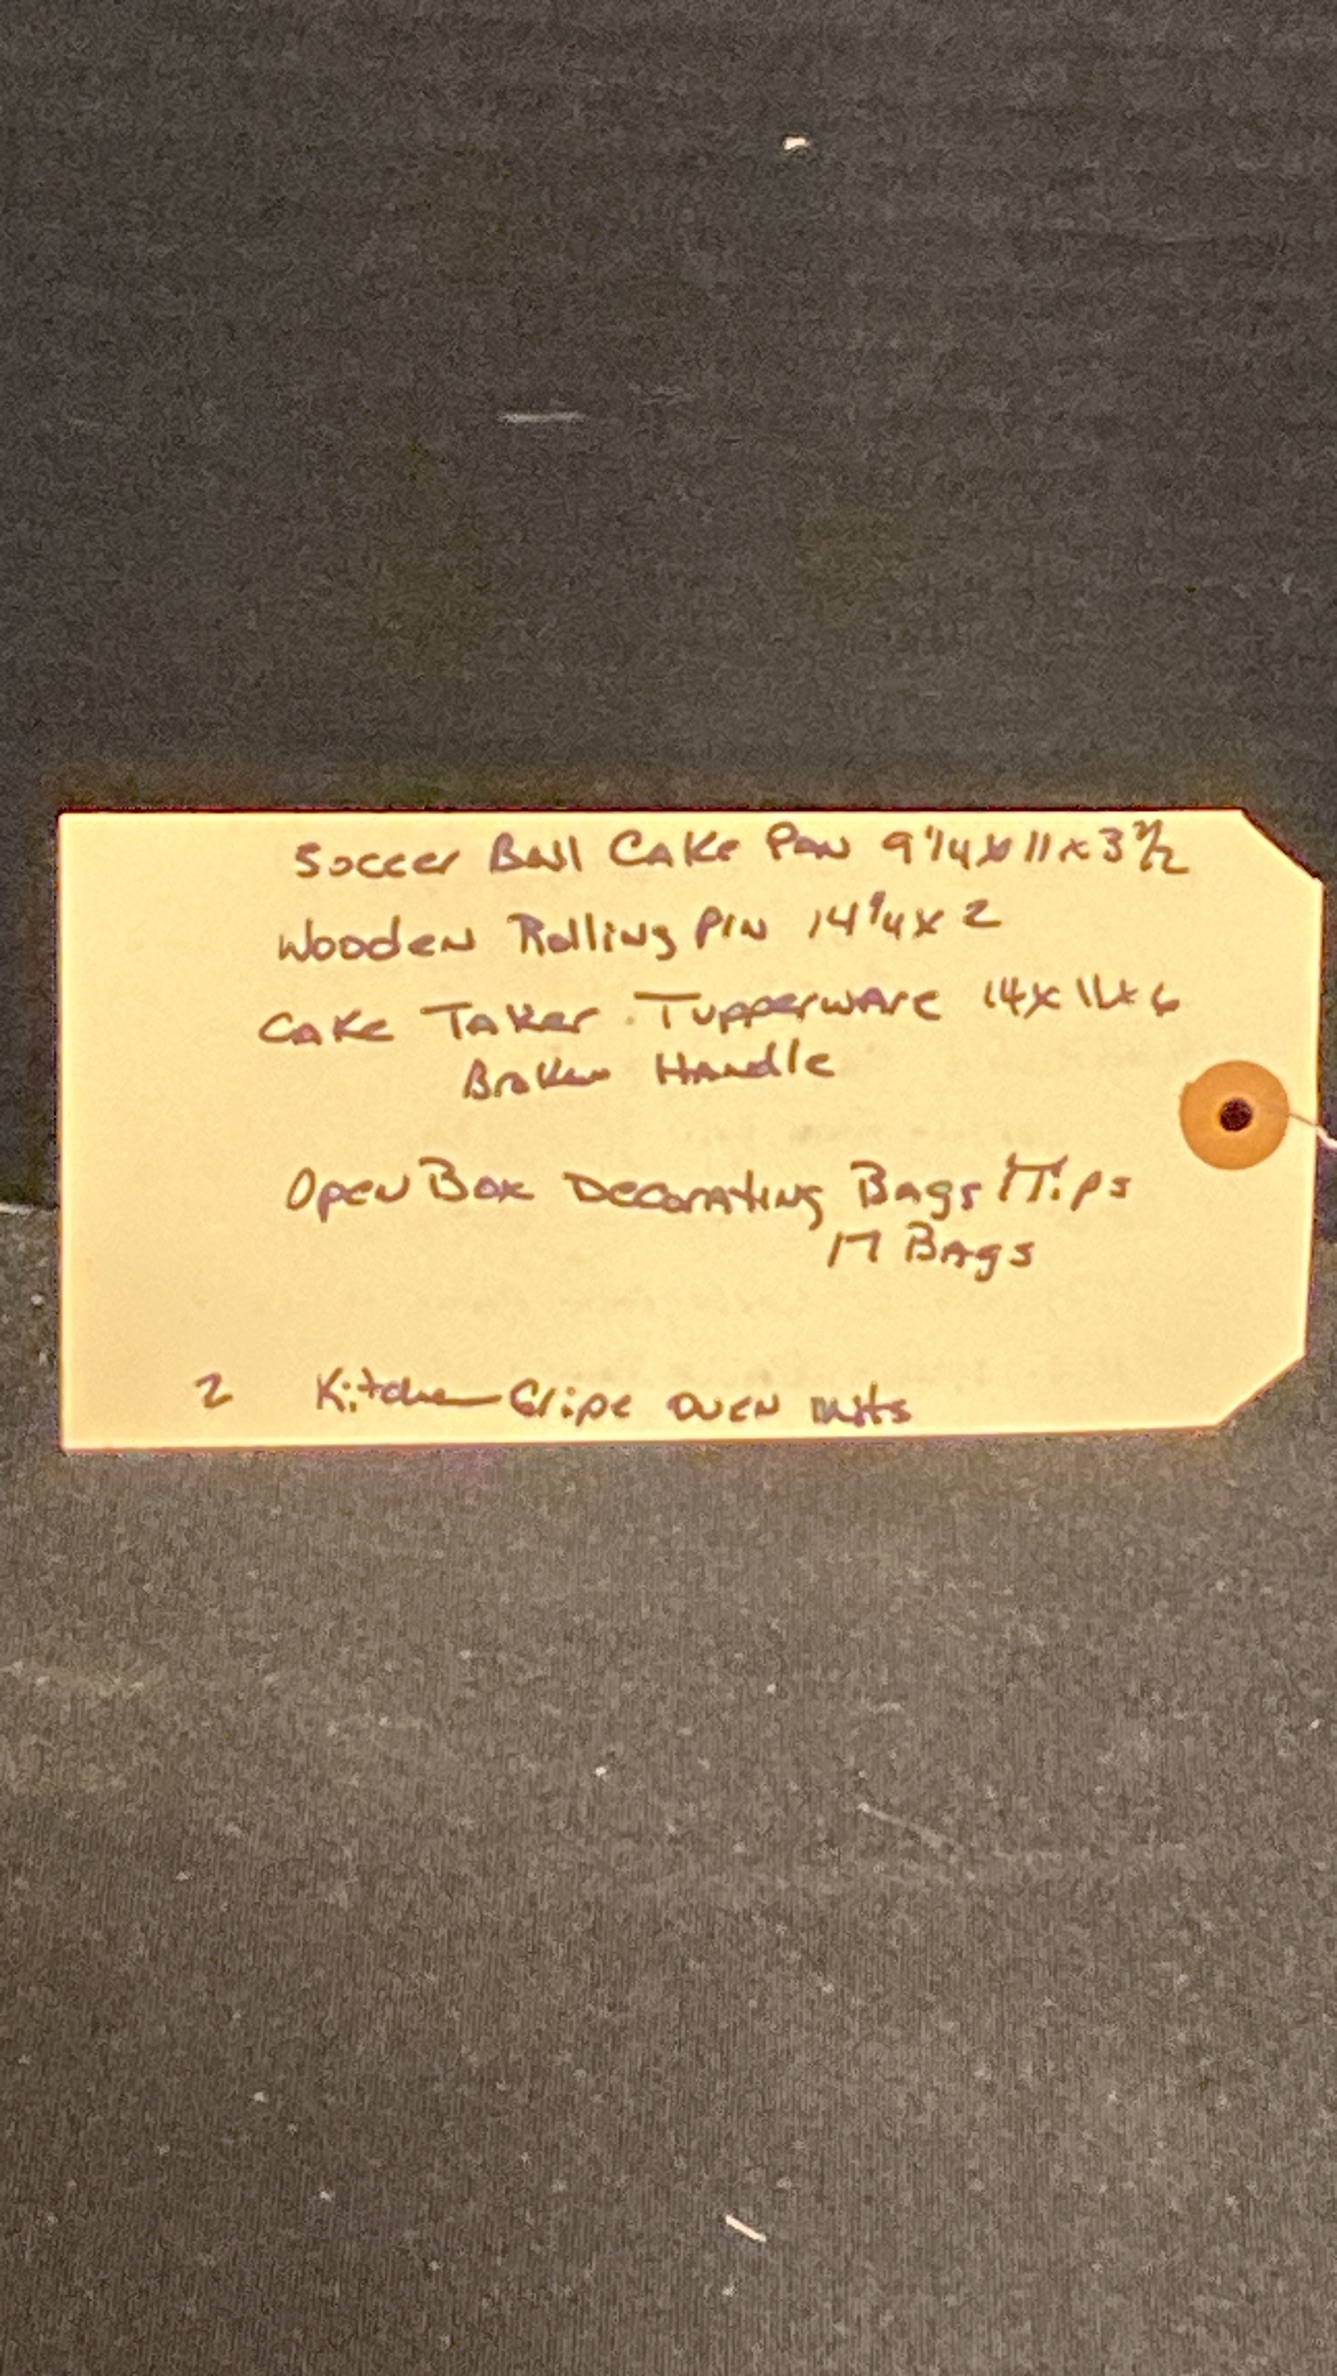 Soccer Ball Cake Pan 9 1/4 x 11 x 3 1/2
Wooden Rolling Pin 14 1/4 x 2
Cake Taker Tupperware 14 x 11 x 6
Broken Handle
Open Box Decorating Bags Tips
17 Bags
2 Kitchen Gripe oven mits